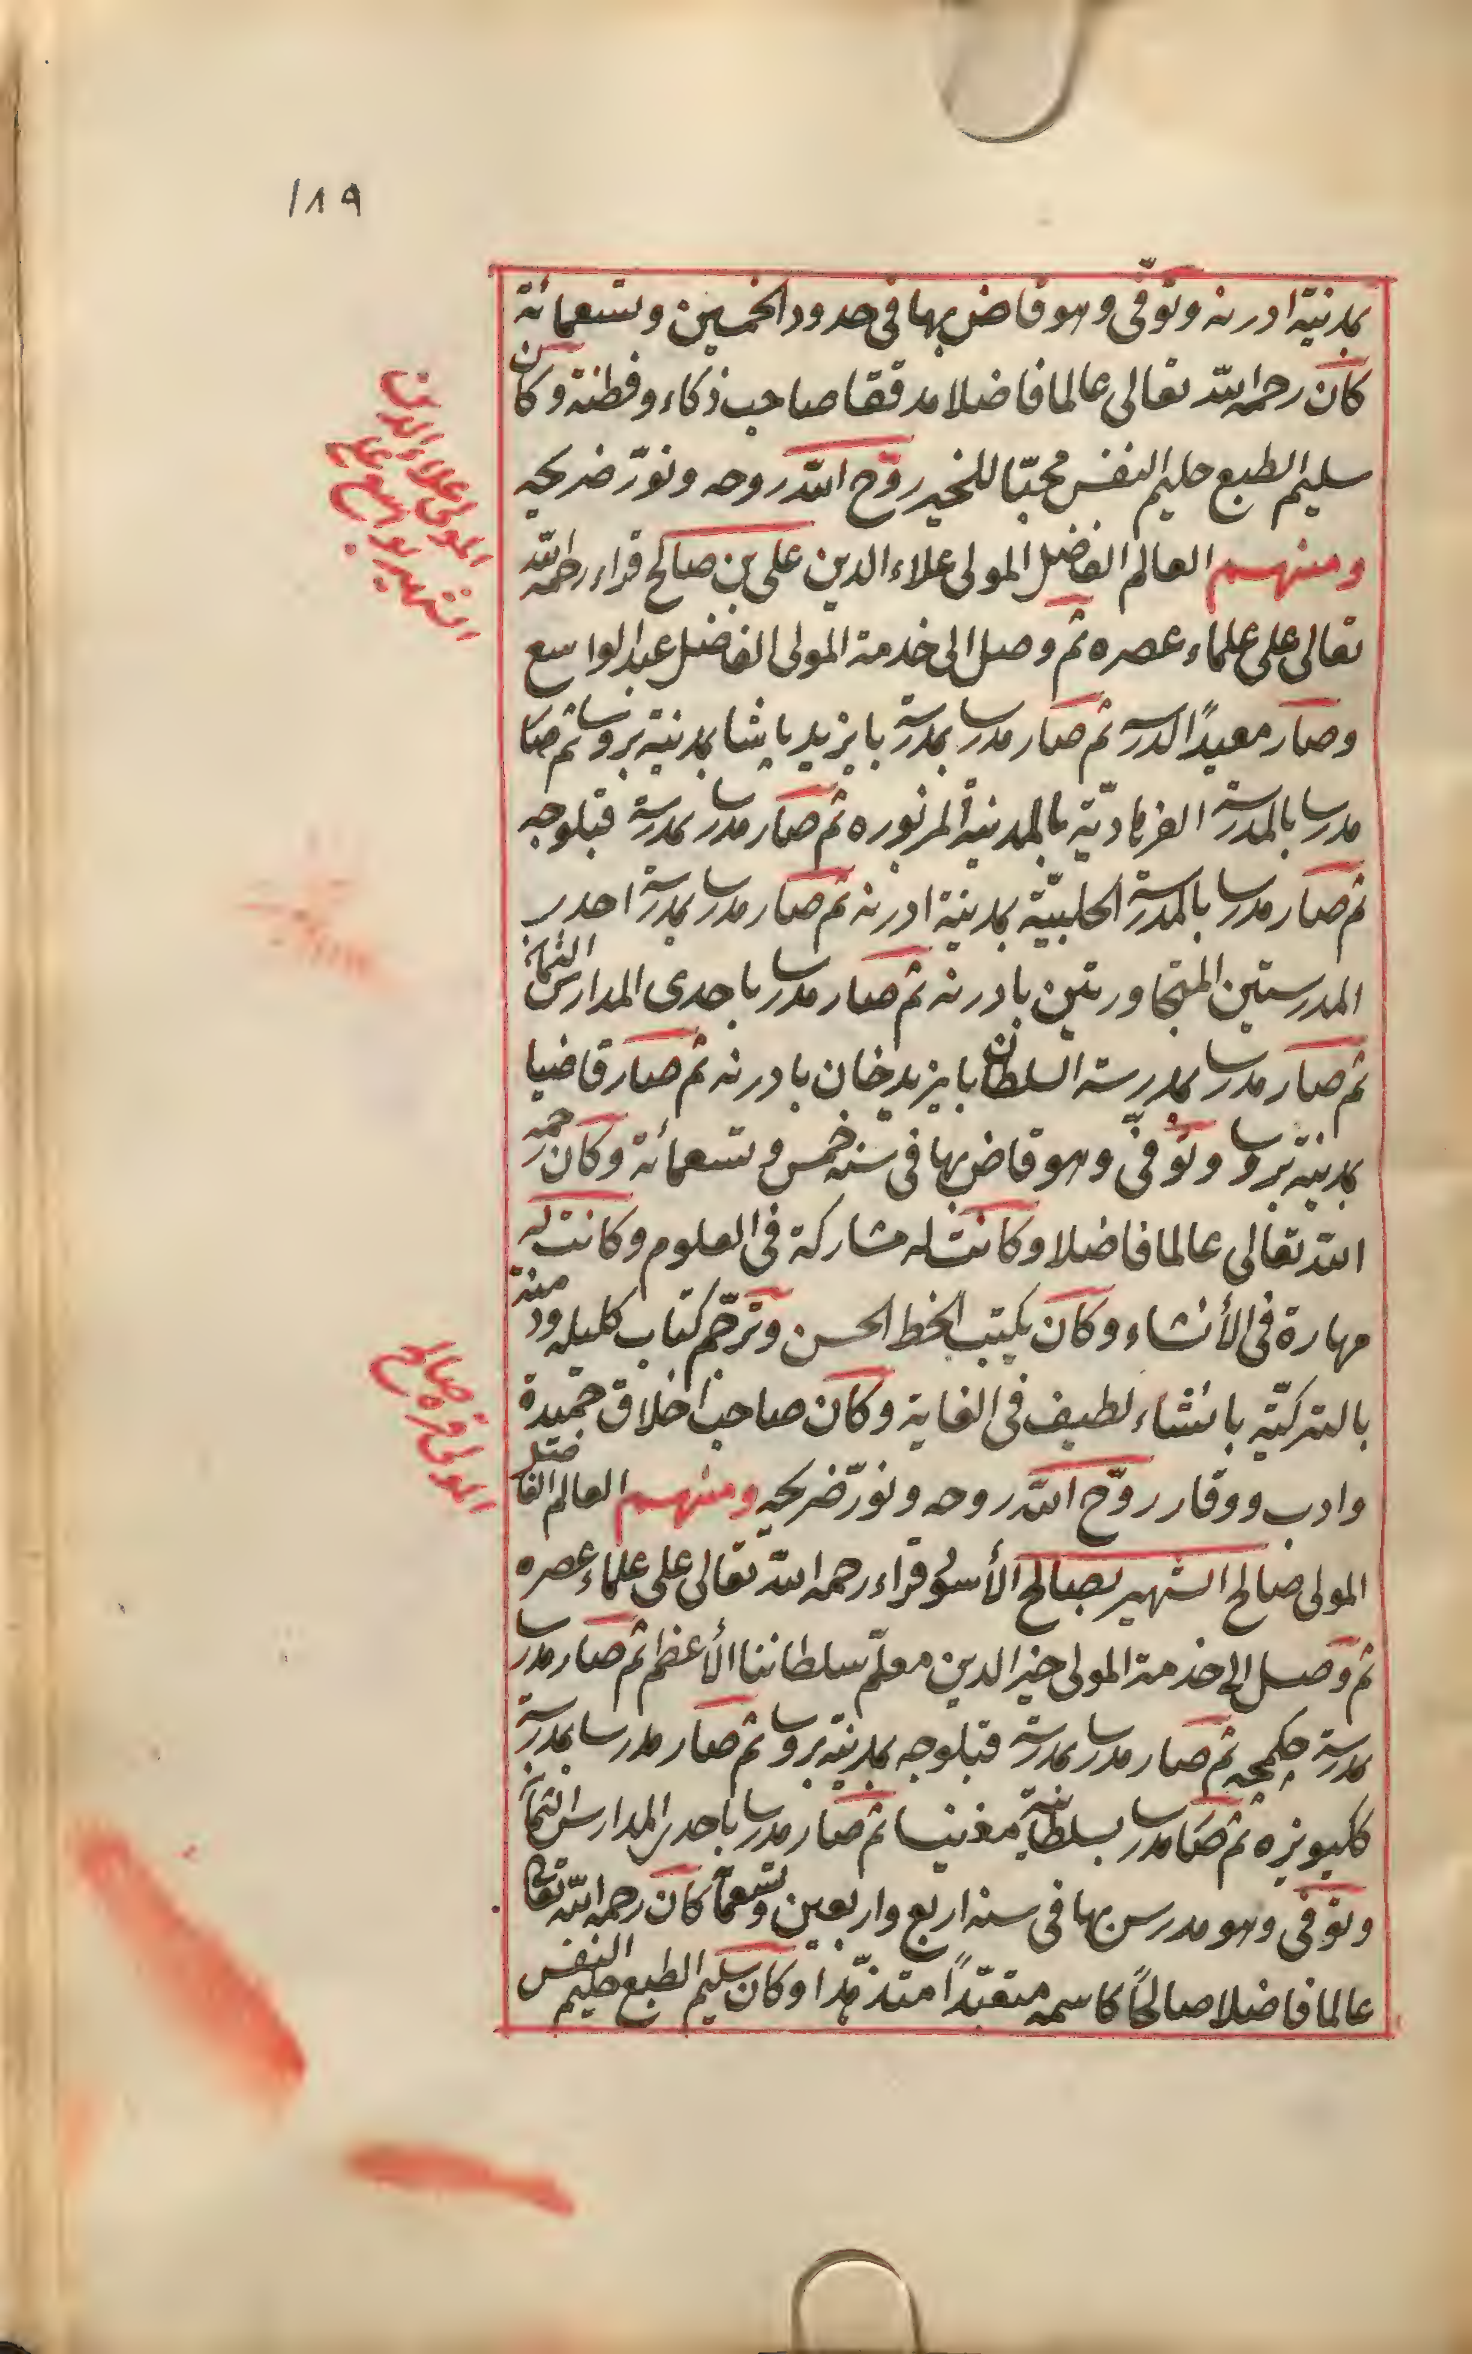 ١٨٩
بمدينة ادرنه وتوفّى وهو قاض بها فى حدود الخمسين وتسعمائة
كان رحمه الله تعالى عالما فاضلا مدققا صاحب ذكاء وفطنة وكان
سليم الطبع حليم النفس محبّا للخير روّح الله روحه ونوّر ضريحه
ومنهم العالم الفاضل المولى علاء الدين على بن صالح قراء رحمه الله
تعالى على علماء عصره ثم وصل الى خدمة المولى الفاضل عبد الواسع
وصار معيدًا لدرسه ثم صار مدرسا بمدرسة بايزيد پاشا بمدينة بروسا ثم صا
مدرسا بالمدرسة الفرهاديّة بالمدينة المزبوره ثم صار مدرسا بمدرسة قبلوجه
ثم صار مدرسا بالمدرسة الحلبيّة بمدينة ادرنه ثم صار مدرسا بمدرسة احدى
المدرستين المتجاورتين بادرنه ثم صار مدرسا باحدى المدارس الثمان
ثم صار مدرسا بمدرسة السلطان بايزيد خان بادرنه ثم صار قاضيا
بمدينة بروسا وتوفّى وهو قاض بها فى سنه خمس وتسعمائة وكان رحمه
الله تعالى عالما فاضلا وكانت له مشاركة فى العلوم وكانت له
مهارة فى الأنشاء وكان يكتب الخط الحسن وترجّم كتاب كليله ودمنة
بالتركيّة بانشاء لطيف فى الغاية وكان صاحب اخلاق حميدة
وادب ووقار روّح الله روحه ونوّر ضريحه ومنهم العالم الفاضل
المولى صالح الشهير بصالح الأسود قراء رحمه الله تعالى على علماء عصره
ثم وصل الى خدمة المولى خير الدين معلّم سلطاننا الأعظم ثم صار مدرسا
بمدرسة چكمجه ثم صار مدرسا بمدرسة قبلوجه بمدينة بروسا ثم صار مدرسا بمدرسة
كليوبزه ثم صار مدرسا بسلطانية مغنيسا ثم صار مدرسا باحدى المدارس الثمان
وتوفى وهو مدرس بها فى سنه اربع واربعين وتسعمأ كان رحمه الله تعالى
عالما فاضلا صالحًا كاسمه متعبّدًا متزهّدا وكان سليم الطبع حليم النفس
المولى علاء الدين على
الشهير بواسع عليسى
المولى قره صالح